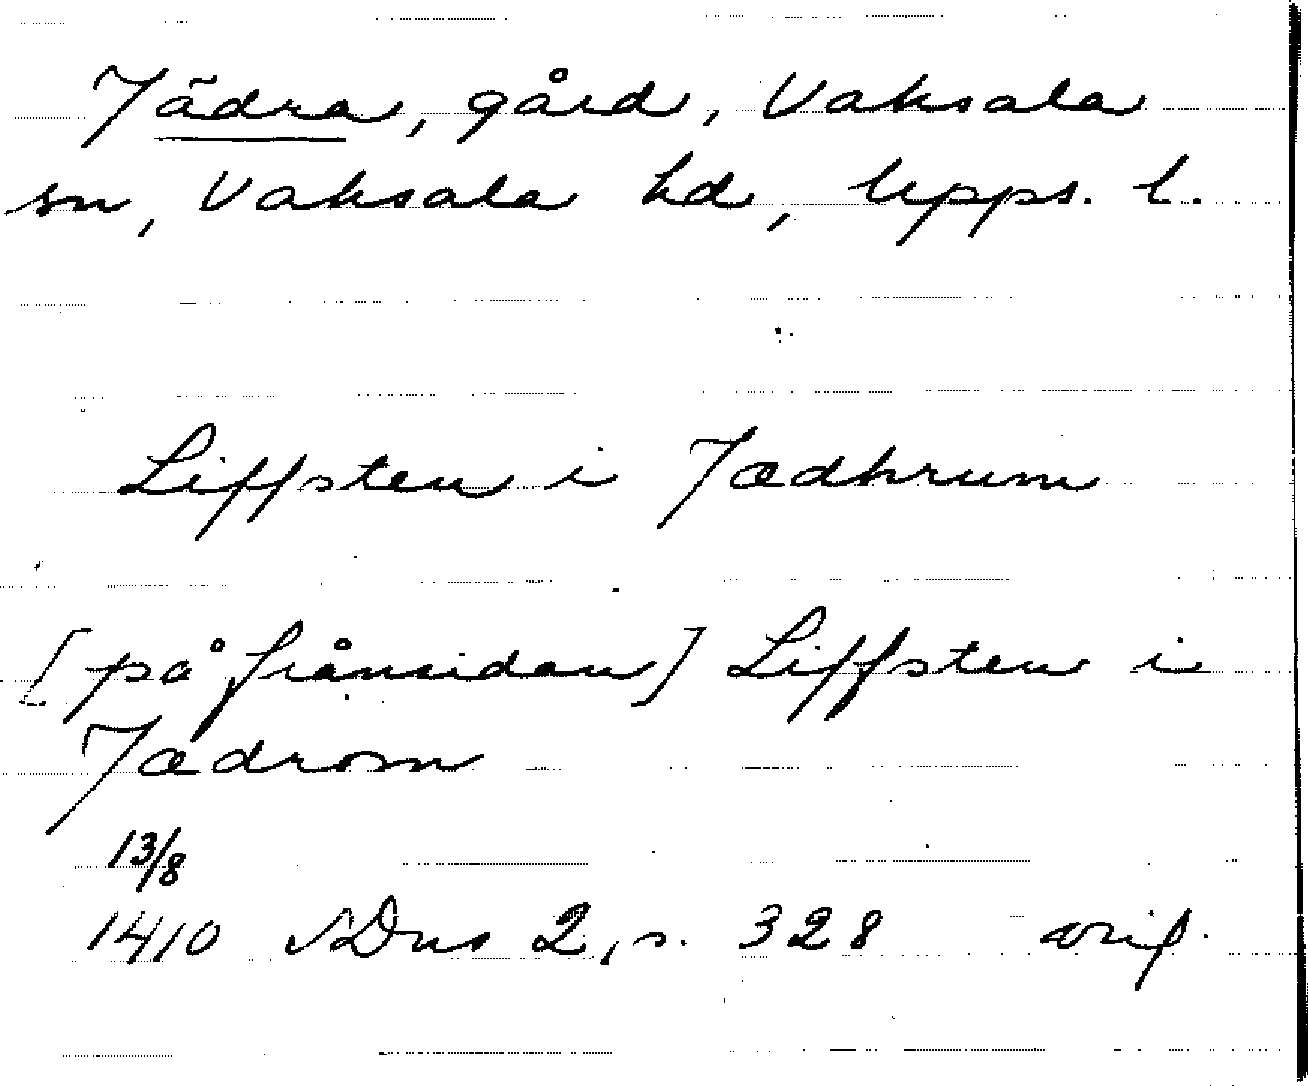 Jädra, gård, Vaksala
sn, Vaksala hd, Upps. l.
Liffsten i Jædhrum
[på frånsidan] Liffsten i
Jædrom
13/8
1410 SDns 2, s. 328 orig.